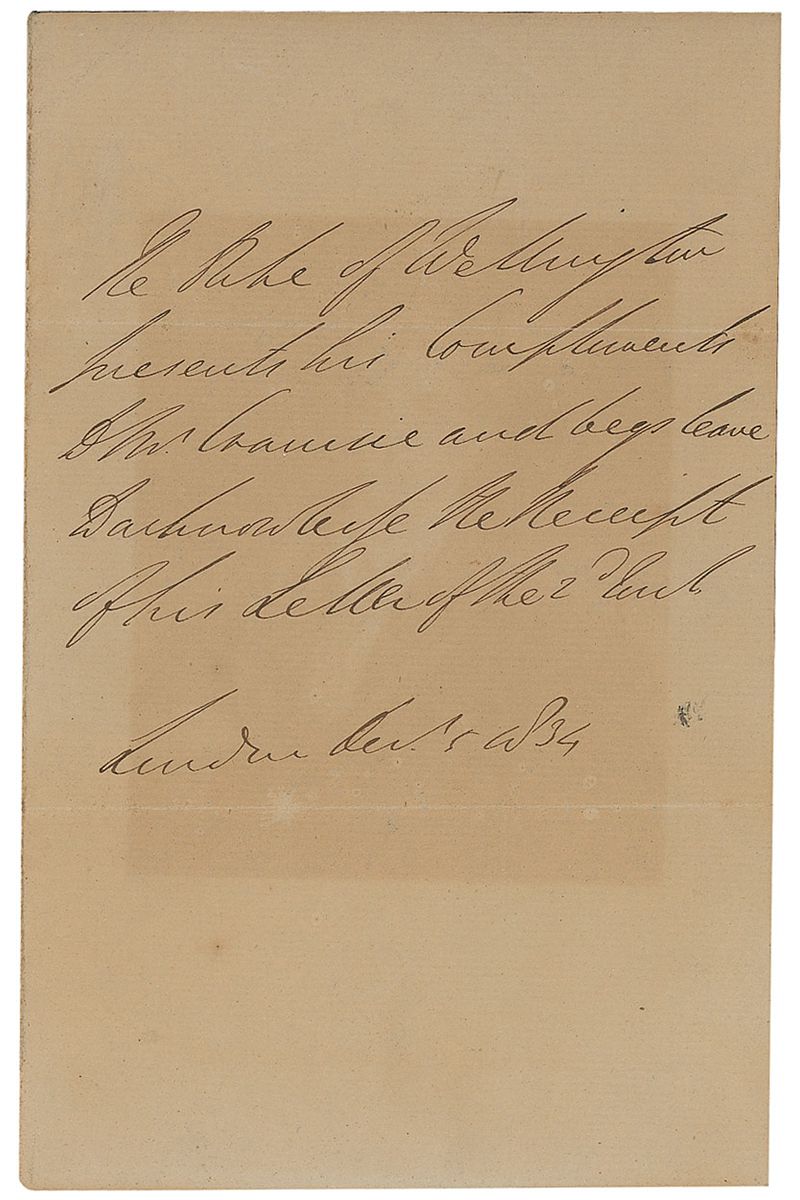 The Duke of Wellington
presents his Compliments
To Mr. Cramsie and begs leave
To acknowledge the Receipt
of his Letter of the 2d Inst.
London Decr. 5 1834